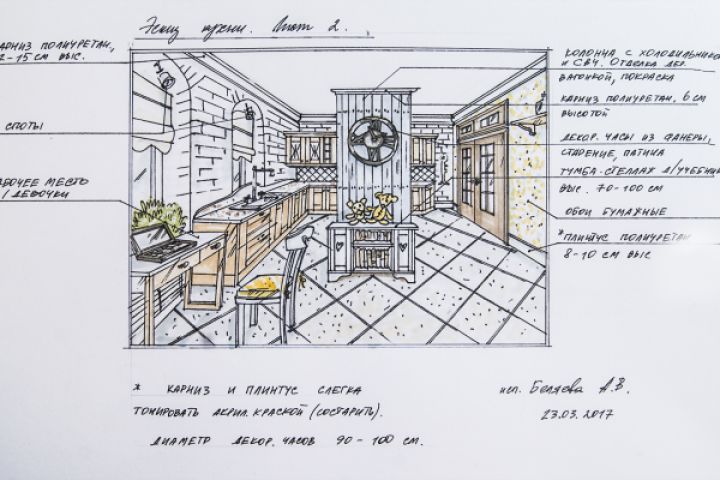 Эскиз кухни. Лист 2.
КАРНИЗ ПОЛИУРЕТАН,
-15 СМ ВЫС.
СПОТЫ
МЕСТО
/ДЕВОЧКИ
КОЛОННА С ХОЛОДИЛЬНИКО
И СВЧ. ОТДЕЛКА ДЕР.
ВАГОНКОЙ, ПОКРАСКА
КАРНИЗ ПОЛИУРЕТАН, 6 СМ
ВЫСОТОЙ
ДЕКОР. ЧАСЫ ИЗ ФАНЕРЫ,
СТАРЕНИЕ, ПАТИНА
ТУМБА-СТЕЛЛАЖ Д/УЧЕБНИК
ВЫС. 70-100 СМ
ОБОИ БУМАЖНЫЕ
*ПЛИНТУС ПОЛИУРЕТАН
8-10 СМ ВЫС
* КАРНИЗ И ПЛИНТУС СЛЕГКА
ТОНИРОВАТЬ АКРИЛ. КРАСКОЙ (СОСТАРИТЬ).
ДИАМЕТР ДЕКОР. ЧАСОВ 90-100 СМ.
исп. Беляева А.В.
23.03.2017